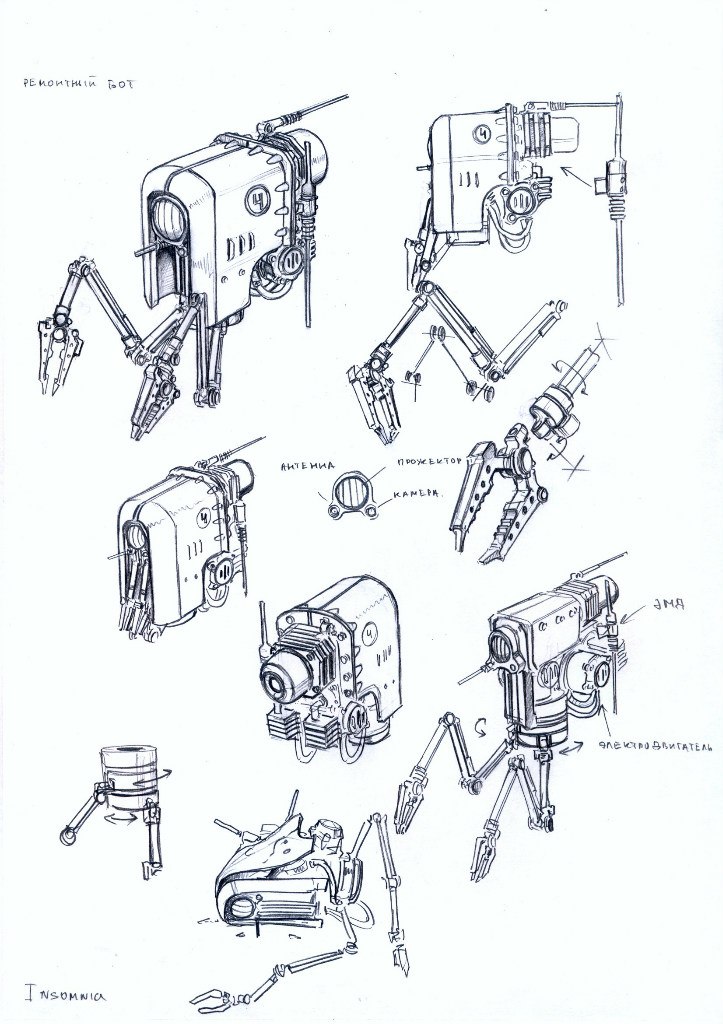 РЕМОНТНЫЙ БОТ
4
4
АНТЕННА
ПРОЖЕКТОР
КАМЕРА
4
4
ЭМД
ЭЛЕКТРОДВИГАТЕЛЬ
INSOMNIA